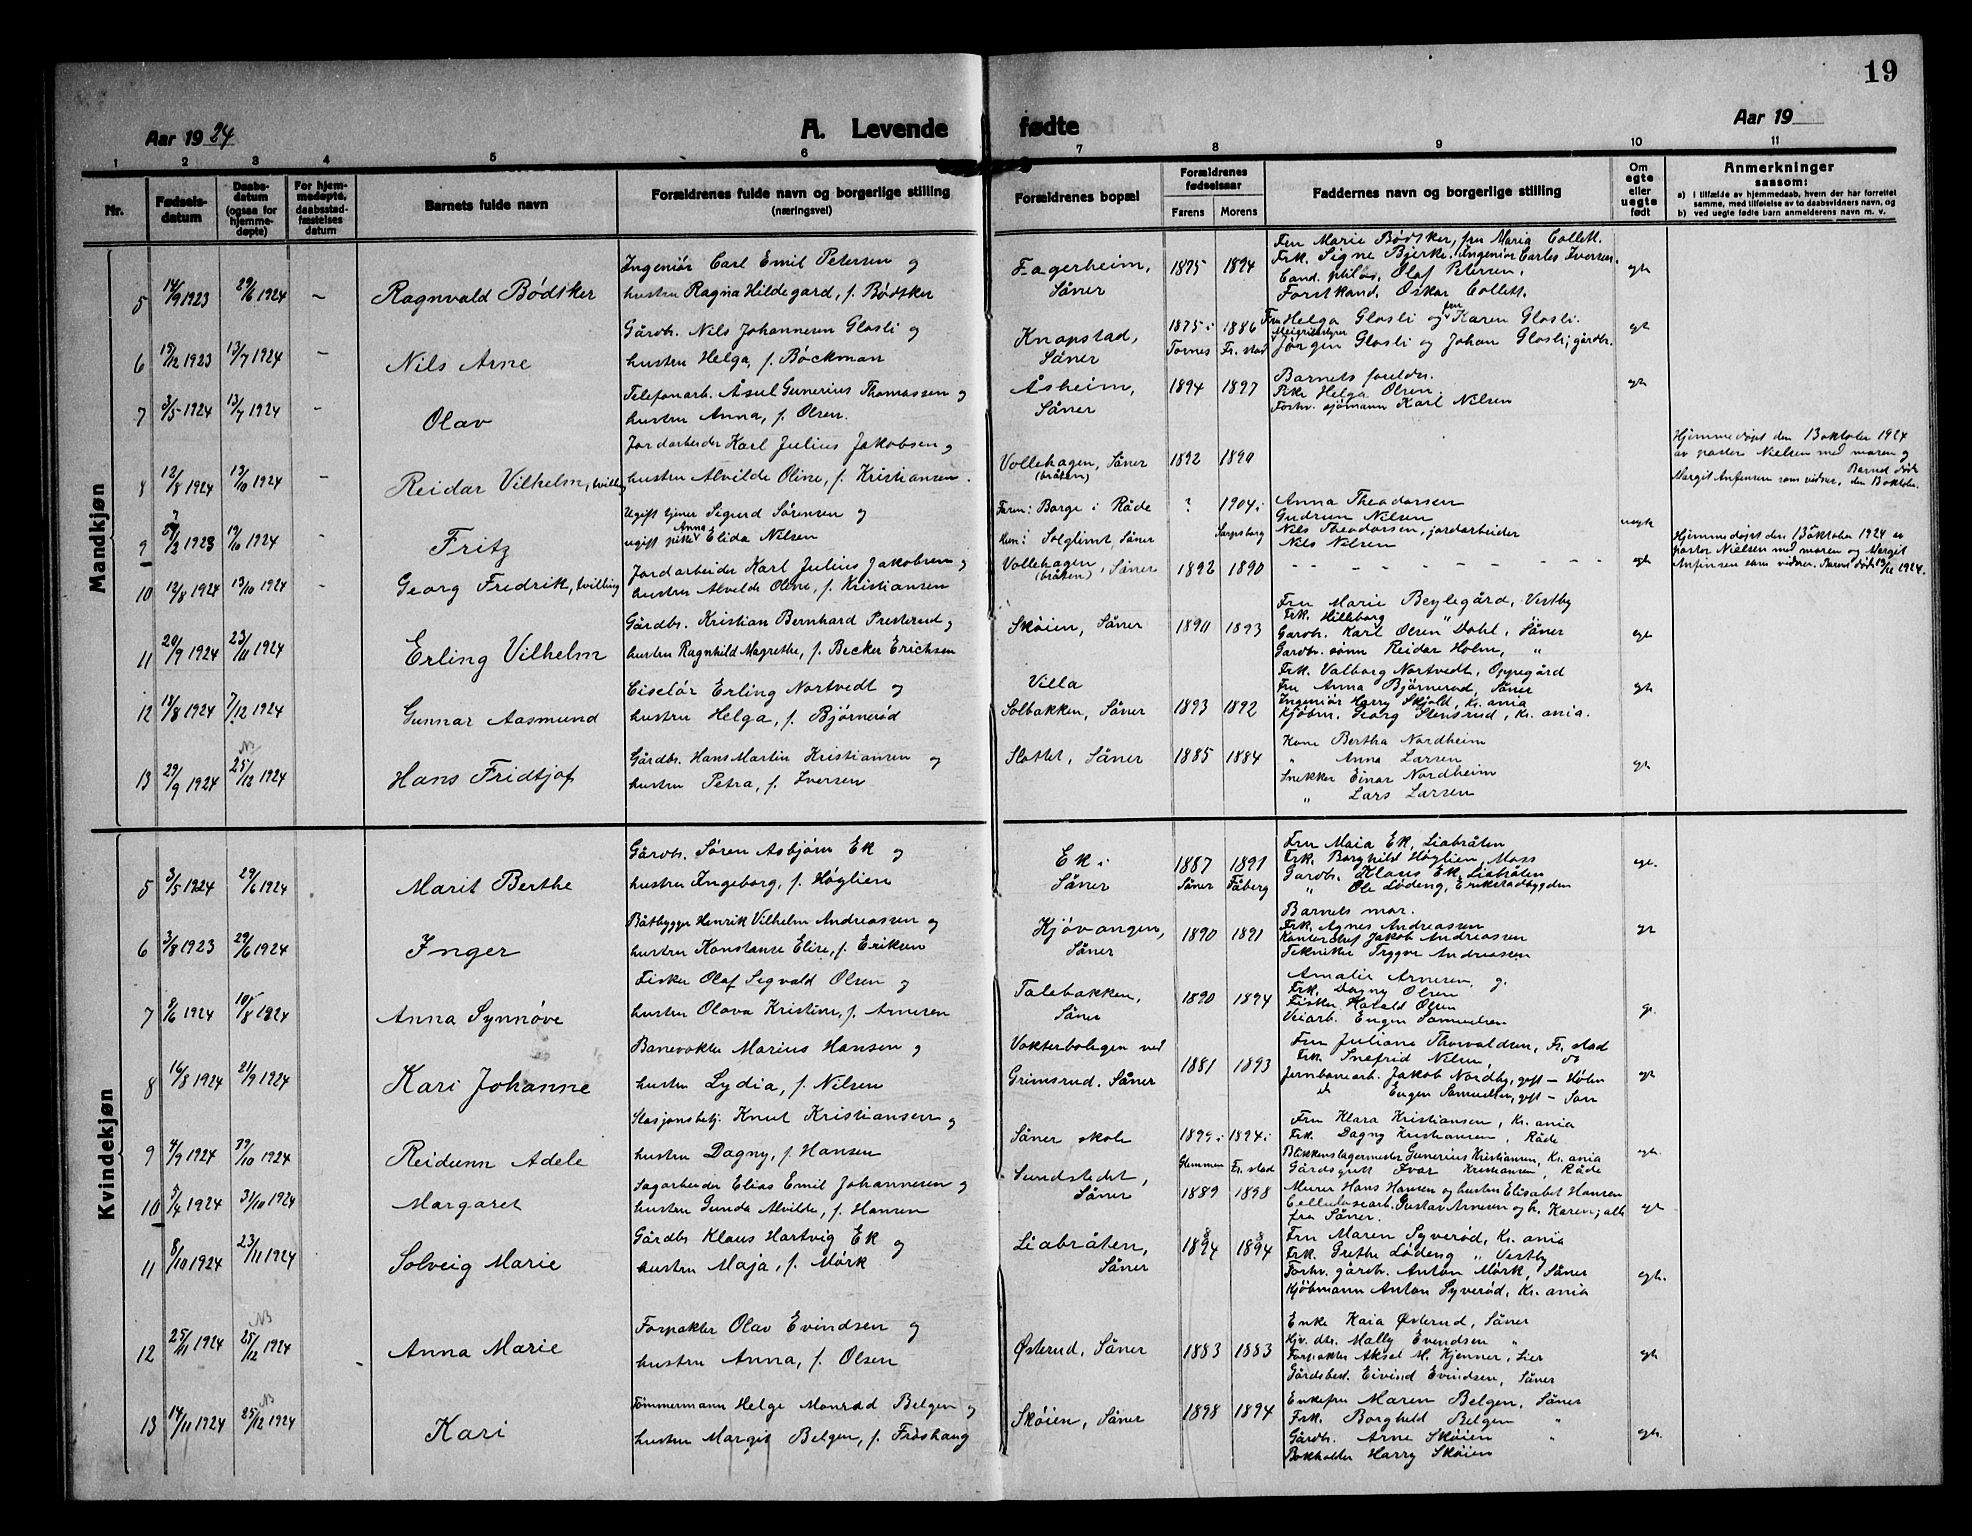 19
Aar 1924
A. Levende fødte
Aar 19
1 2 3 4 5 6 7 8 9 10 11
Nr.
Fødsels-datum
Daabs-datum (ogsaa for hjemme-døpte)
For hjem-medøpte, daabsstad-fæstelses datum
Barnets fulde navn
Forældrenes fulde navn og borgerlige stilling (næringsvei)
Forældrenes bopæl
Forældrenes fødselsaar
Farens Morens
Faddernes navn og borgerlige stilling
Om egte eller uegte født
Anmerkninger saasom:
a) i tilfælde av hjemmedaab, hvem der har forrettet samme, med tilføielse av to daabsvidners navn, og
b) ved uegte fødte barn anmelderens navn m. v.
Mandkjøn
5 14/9 1923 29/6 1924 – Ragnvald Bödtker
Ingeniör Carl Emil Petersen og
hustru Ragna Hildegard, f. Bödtker
Fagerheim, Såner
1875 1894
Fru Marie Bödtker, fru Maria Collett.
Frk. Signe Bjerke. Ingeniör Carles Iversen
Cand. philos. Olaf Petersen.
Forstkand. Oskar Collett.
egte
6 19/12 1923 13/7 1924 – Nils Arne
Gårdb. Nils Johannesen Glosli og
hustru Helga, f. Böckman
Knapstad, Såner
1875 i Tornes 1886 Fr.stad
Fru Helga Glosli og fru Karen Glosli.
Jörgen Glosli og Johan Glosli, gårdbr.
egt
7 3/5 1924 13/7 1924 – Olav
Telefonarb. Åsul Gunerius Thomassen og
hustru Anna, f. Olsen.
Åsheim, Såner
1894 1897
Barnets foreldre.
Frk Helga Olsen
Forhv. sjömann Karl Nilsen
egte
8 12/8 1924 13/10 1924 – Reidar Vilhelm, tvilling
Jordarbeider Karl Julius Jakobsen og
hustru Alvilde Oline, f. Kristiansen.
Vollehagen, Såner (bråten)
1892 1890
Hjemmedöpt den 13 oktober 1924
av pastor Nielsen med moren og
Margit Anfinsen som vidner. Barnet död
den 13 oktober.
9 1923 19/10 1924 – Fritz
Ugift tjener Sigurd Sörensen og
ugift pike Anna Elida Nilsen
Faren: Borge i Råde
Hun: Solglimt, Såner
? 1904 i Sarpsborg
Anna Theodorsen
Gudrun Nilsen
Nils Theodorsen, jordarbeider
Nils Nilsen
uegte
10 12/8 1924 13/10 1924 – Georg Fredrik, tvilling
Jordarbeider Karl Julius Jakobsen og
hustru Alvilde Oline, f. Kristiansen
Vollehagen (bråten), Såner
1892 1890
– – – – – – – – – –
egte
Hjemmedöpt den 13 oktober 1924 av
pastor Nielsen med moren og Margit
Anfinsen som vidner. Barnet död 1924.
11 20/9 1924 23/11 1924 Erling Vilhelm
Gårdb. Kristian Bernhard Presterud og
hustru Ragnhild Magrethe, f. Becker Erichsen
Sköien, Såner
1890 1893
Fru Marie Beylegård, Vestby
Frk. Hilleborg "
Gardb. Karl Olsen Dahl, Såner
Gardb. sönn Reidar Holm, "
egte
12 14/8 1924 7/12 1924 Gunnar Aasmund
Ciselör Erling Nortvedt og
hustru Helga, f. Björneröd
Villa Solbakken, Såner
1893 1892
Frk. Valborg Nortvedt, Oppegård
Fru Anna Björnerud, Såner
Ingeniör Harry Skjold, Kr.ania
Kjöbm. Georg Stensrud, Kr.ania.
egte
13 29/9 1924 NB 25/12 1924 Hans Fridtjof
Gårdb. Hans Martin Kristiansen og
hustru Petra, f. Iversen
Slottet, Såner
1885 1884
Kone Bertha Nordheim
" Anna Larsen
Snekker Einar Nordheim
" Lars Larsen
egte
Kvindekjøn
5 3/5 1924 29/6 1924 Marit Berthe
Gårdb. Sören Asbjörn Ek og
hustru Ingeborg, f. Höglien
Ek i Såner
1887 Såner 1891 Fåberg
Fru Maia Ek, Liabråten
Frk. Borghild Höglien, Moss
Gardb. Klaus Ek, Liabråten
" Ole Lödeng, Erikstadbygden
egte.
6 3/8 1923 29/6 1924 Inger
Båtbygger Henrik Vilhelm Andreassen og
hustru Konstanse Elise, f. Eriksen
Kjövangen, Såner
1890 1891
Barnets mor.
Frk. Agnes Andreassen
Kontorchef Jakob Andreassen
Tekniker Trygve Andreassen
egt
7 9/6 1924 10/8 1924 Anna Synnöve
Fisker Olaf Sigvald Olsen og
hustru Olava Kristine, f. Arnesen
Talebakken, Såner
1890 1894
Amalie Arnesen og
Frk. Dagny Olsen
Fisker Harald Olsen
Veiarb. Eugen Samuelsen
8 16/8 1924 21/9 1924 Kari Johanne
Banevokter Marius Hansen og
hustru Lydia, f. Nilsen
Vokterboligen ved Grimsrud, Såner
1881 1893
Fru Juliane Thorvaldsen, Fr.stad
Frk. Snefrid Nilsen do
Jernbanearb. Jakob Nordby, gift – Hölen
do Eugen Samuelsen, gift – Son
egt
9 4/9 1924 /10 1924 Reidunn Adele
Stasjonsbetj. Knut Kristiansen og
hustru Dagny, f. Hansen
Såner skole
1899 i Glemmen 1894 i Fr.stad
Fru Klara Kristiansen, Kr.ania
Frk. Dagny Kristiansen, Råde
Blikkenslagermester Gunerius Kristiansen, Kr.ania
Gårdsgutt Ivar Kristiansen, Råde
egte.
10 5/4 1924 31/10 1924 Margaret
Sagarbeider Elias Emil Johannesen og
hustru Gunda Alvilde, f. Hansen
Sundstedet, Såner
1889 1898
Murer Hans Hansen og hustru Elisabet Hansen
Cellulosearb. Gustav Arnesen og h. Karen, alle
fra Såner.
egt
11 8/10 1924 23/11 1924 Solveig Marie
Gårdbr Klaus Hartvig Ek og
hustru Maja, f. Mörk
Liabråten, Såner
1894 1894
Fru Maren Syveröd, Kr.ania
Frk. Grethe Lödeng " Vestby
Forhv. gårdb. Anton Mörk, Såner
Kjöbmann Anton Syveröd, Kr.ania
egte.
12 25/11 1924 NB 25/12 1924 Anna Marie
Forpakter Olav Evindsen og
hustru Anna, f. Olsen
Österud, Såner
1883 1883
Enke Kaia Österud, Såner
Gjv. dtr. Mally Evendsen "
Forpakter Aksel M. Kjenner, Lier
Gårdsbest. Eivind Evindsen, Såner
egte.
13 14/11 1924 NB 25/12 1924 Kari
Tömmermann Helge Monrad Belgen og
hustru Margit Belgen, f. Fröshaug
Sköien, Såner
1898 1894
Enkefru Maren Belgen, Såner
Frk. Borghild Belgen "
Gårdb. Arne Sköien "
Bokholder Harry Sköien
egte.